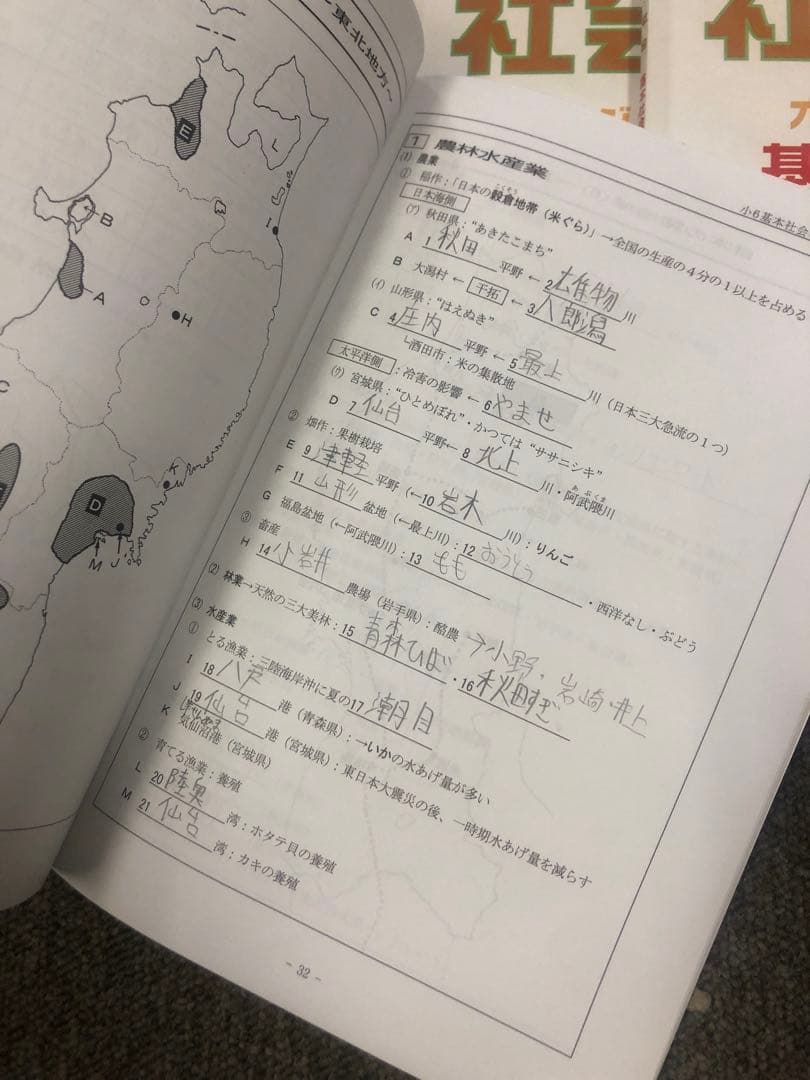 社会
社
基
ー東北地方ー
E
L
B
I
A
H
C
K
D
M
J
小6基本社会
1 農林水産業
(1) 農業
① 稲作:「日本の穀倉地帯(米ぐら)」→全国の生産の4分の1以上を占める
こくそう
日本海側
(ア) 秋田県:“あきたこまち”
A 1 秋田 平野 ← 2 雄物 川
B 大潟村 ← 干拓 ← 3 八郎潟
(イ) 山形県:“はえぬき”
C 4 庄内 平野 ← 5 最上 川(日本三大急流の1つ)
酒田市:米の集散地
太平洋側:冷害の影響 ← 6 やませ
(ウ) 宮城県:“ひとめぼれ”・かつては“ササニシキ”
D 7 仙台 平野← 8 北上 川・阿武隈川
あぶくま
② 畑作:果樹栽培
E 9 津軽 平野(←10 岩木 川):りんご
F 11 山形 盆地(←最上川):12 おうとう ・西洋なし・ぶどう
G 福島盆地(←阿武隈川):13 もも
③ 畜産
H 14 小岩井 農場(岩手県):酪農 →小野、岩崎・井上
(2) 林業→天然の三大美林:15 青森ひば・16 秋田すぎ
(3) 水産業
① とる漁業:三陸海岸沖に夏の17 潮目
I 18 八戸 港(青森県):→いかの水あげ量が多い
J 19 仙台 港(宮城県):東日本大震災の後、一時期水あげ量を減らす
K 気仙沼港(宮城県)
② 育てる漁業:養殖
L 20 陸奥 湾:ホタテ貝の養殖
M 21 仙台 湾:カキの養殖
- 32 -